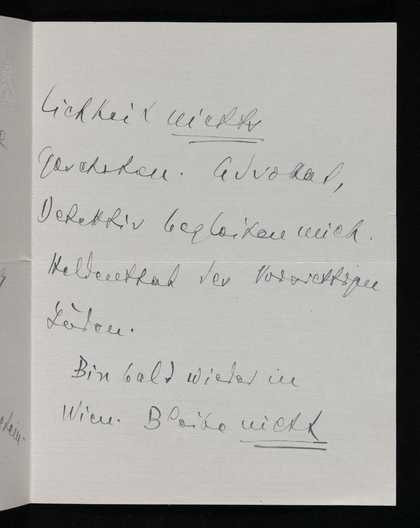 lichkeit nichts
geschehen. Advokat,
Detektiv begleiten mich.
Heldenthat der vorsichtigen
Bin bald wieder in
Wien. Bleibe nicht